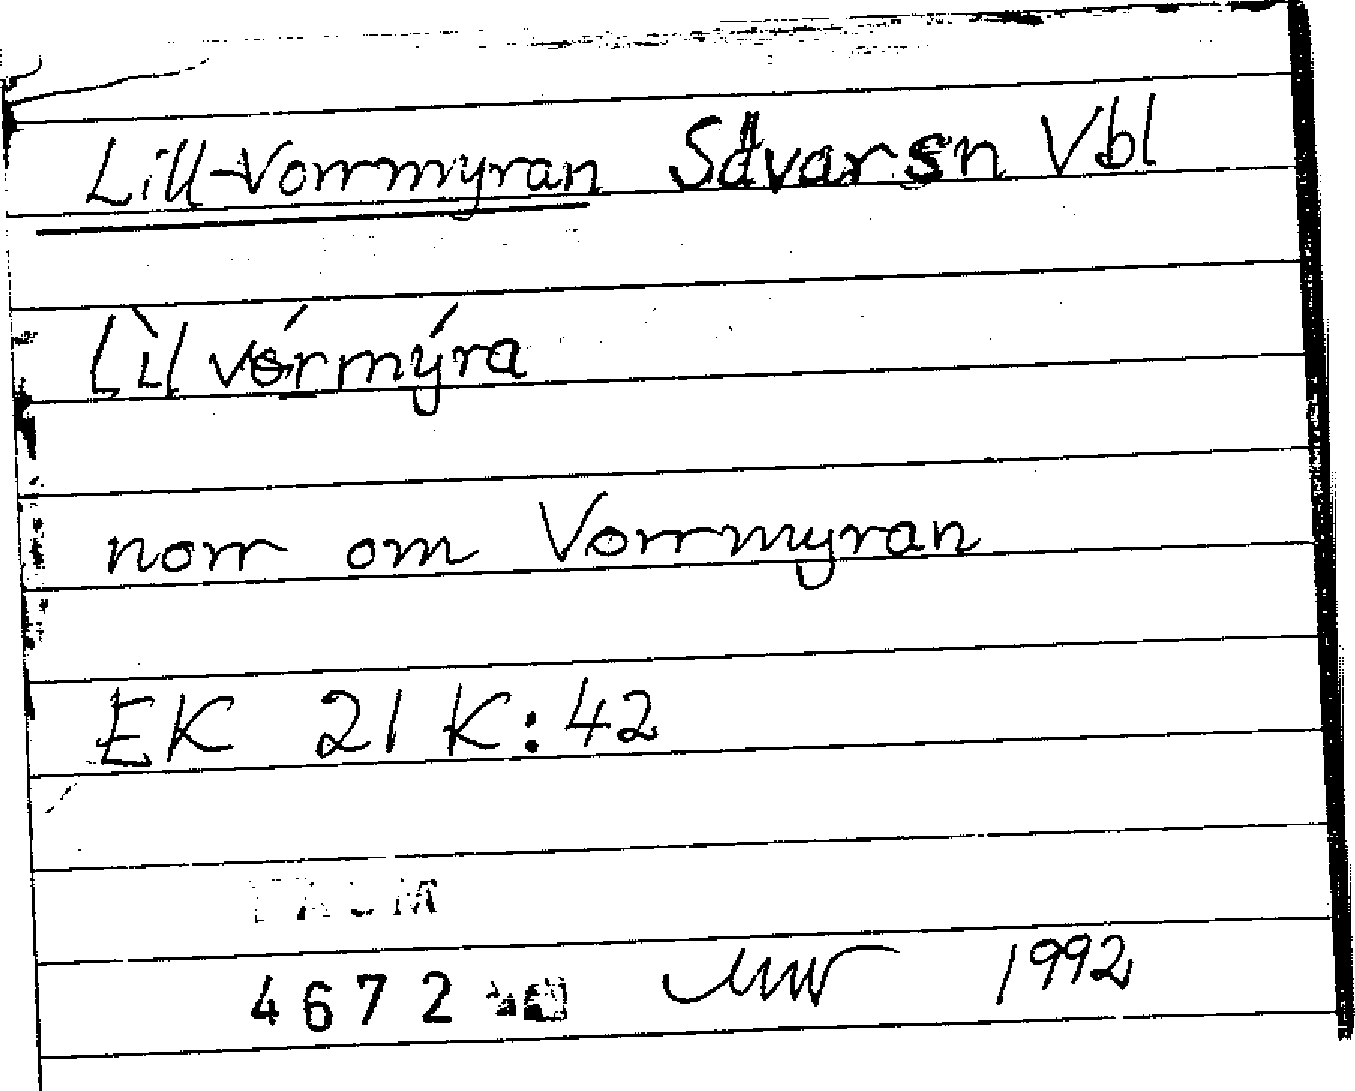 Lill-Vorrmyran Sävarsn Vbl
Lìl vórmýra
norr om Vorrmyran
EK 21 K:42
4672
1992